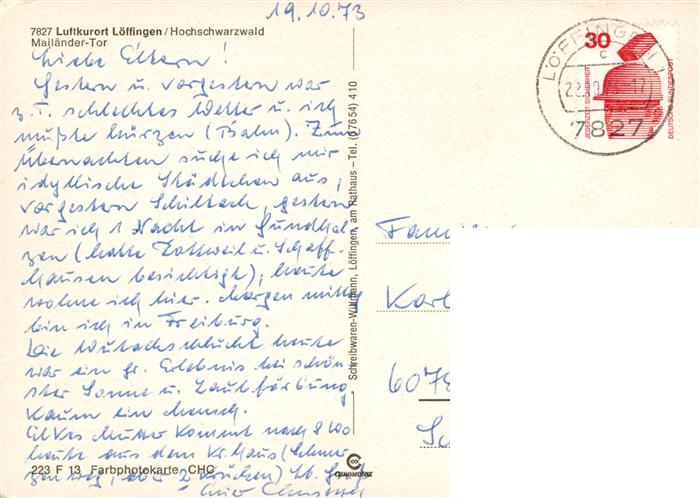 19.10.73
7827 Luftkurort Löffingen / Hochschwarzwald
Mailänder-Tor
Liebe Eltern!
Gestern u. vorgestern war
z. T. schlechtes Wetter u. ich
mußte kürzen (Bahn). Zum
Übernachten suche ich mir
idyllische Städtchen aus,
vorgestern Schiltach, gestern
war ich 1 Nacht in
zen (hatte Rottweil u. Schaff-
hausen besichtigt), heute
wohne ich hier. Morgen mittag
bin ich in Freiburg.
Die Wutachschlucht heute
war ein gr. Erlebnis bei schön-
ster Sonne u. Laubfärbung.
Kaum ein Mensch.
Mutter kommt nach
heute aus dem Kr.Haus (Schmer-
zen weg, aber 2 Krücken)
Euer
223 F 13 Farbphotokarte CHC
CHROMODIX
Schreibwaren-Willmann, Löffingen, am Rathaus – Tel. (07654) 410
LÖFFINGEN 1
c
7827
30
JEDERZEIT SICHERHEIT
DEUTSCHE BUNDESPOST
Famili
Karl
6078